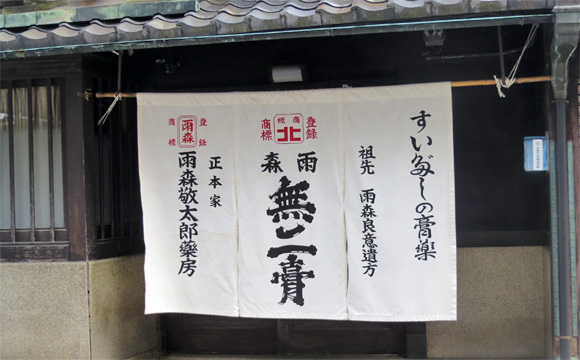 すいだしの膏薬
祖先 雨森良意遺方
登録
商標
北
商標
雨森
無二膏
登録
雨森
商標
正本家
雨森敬太郎藥房